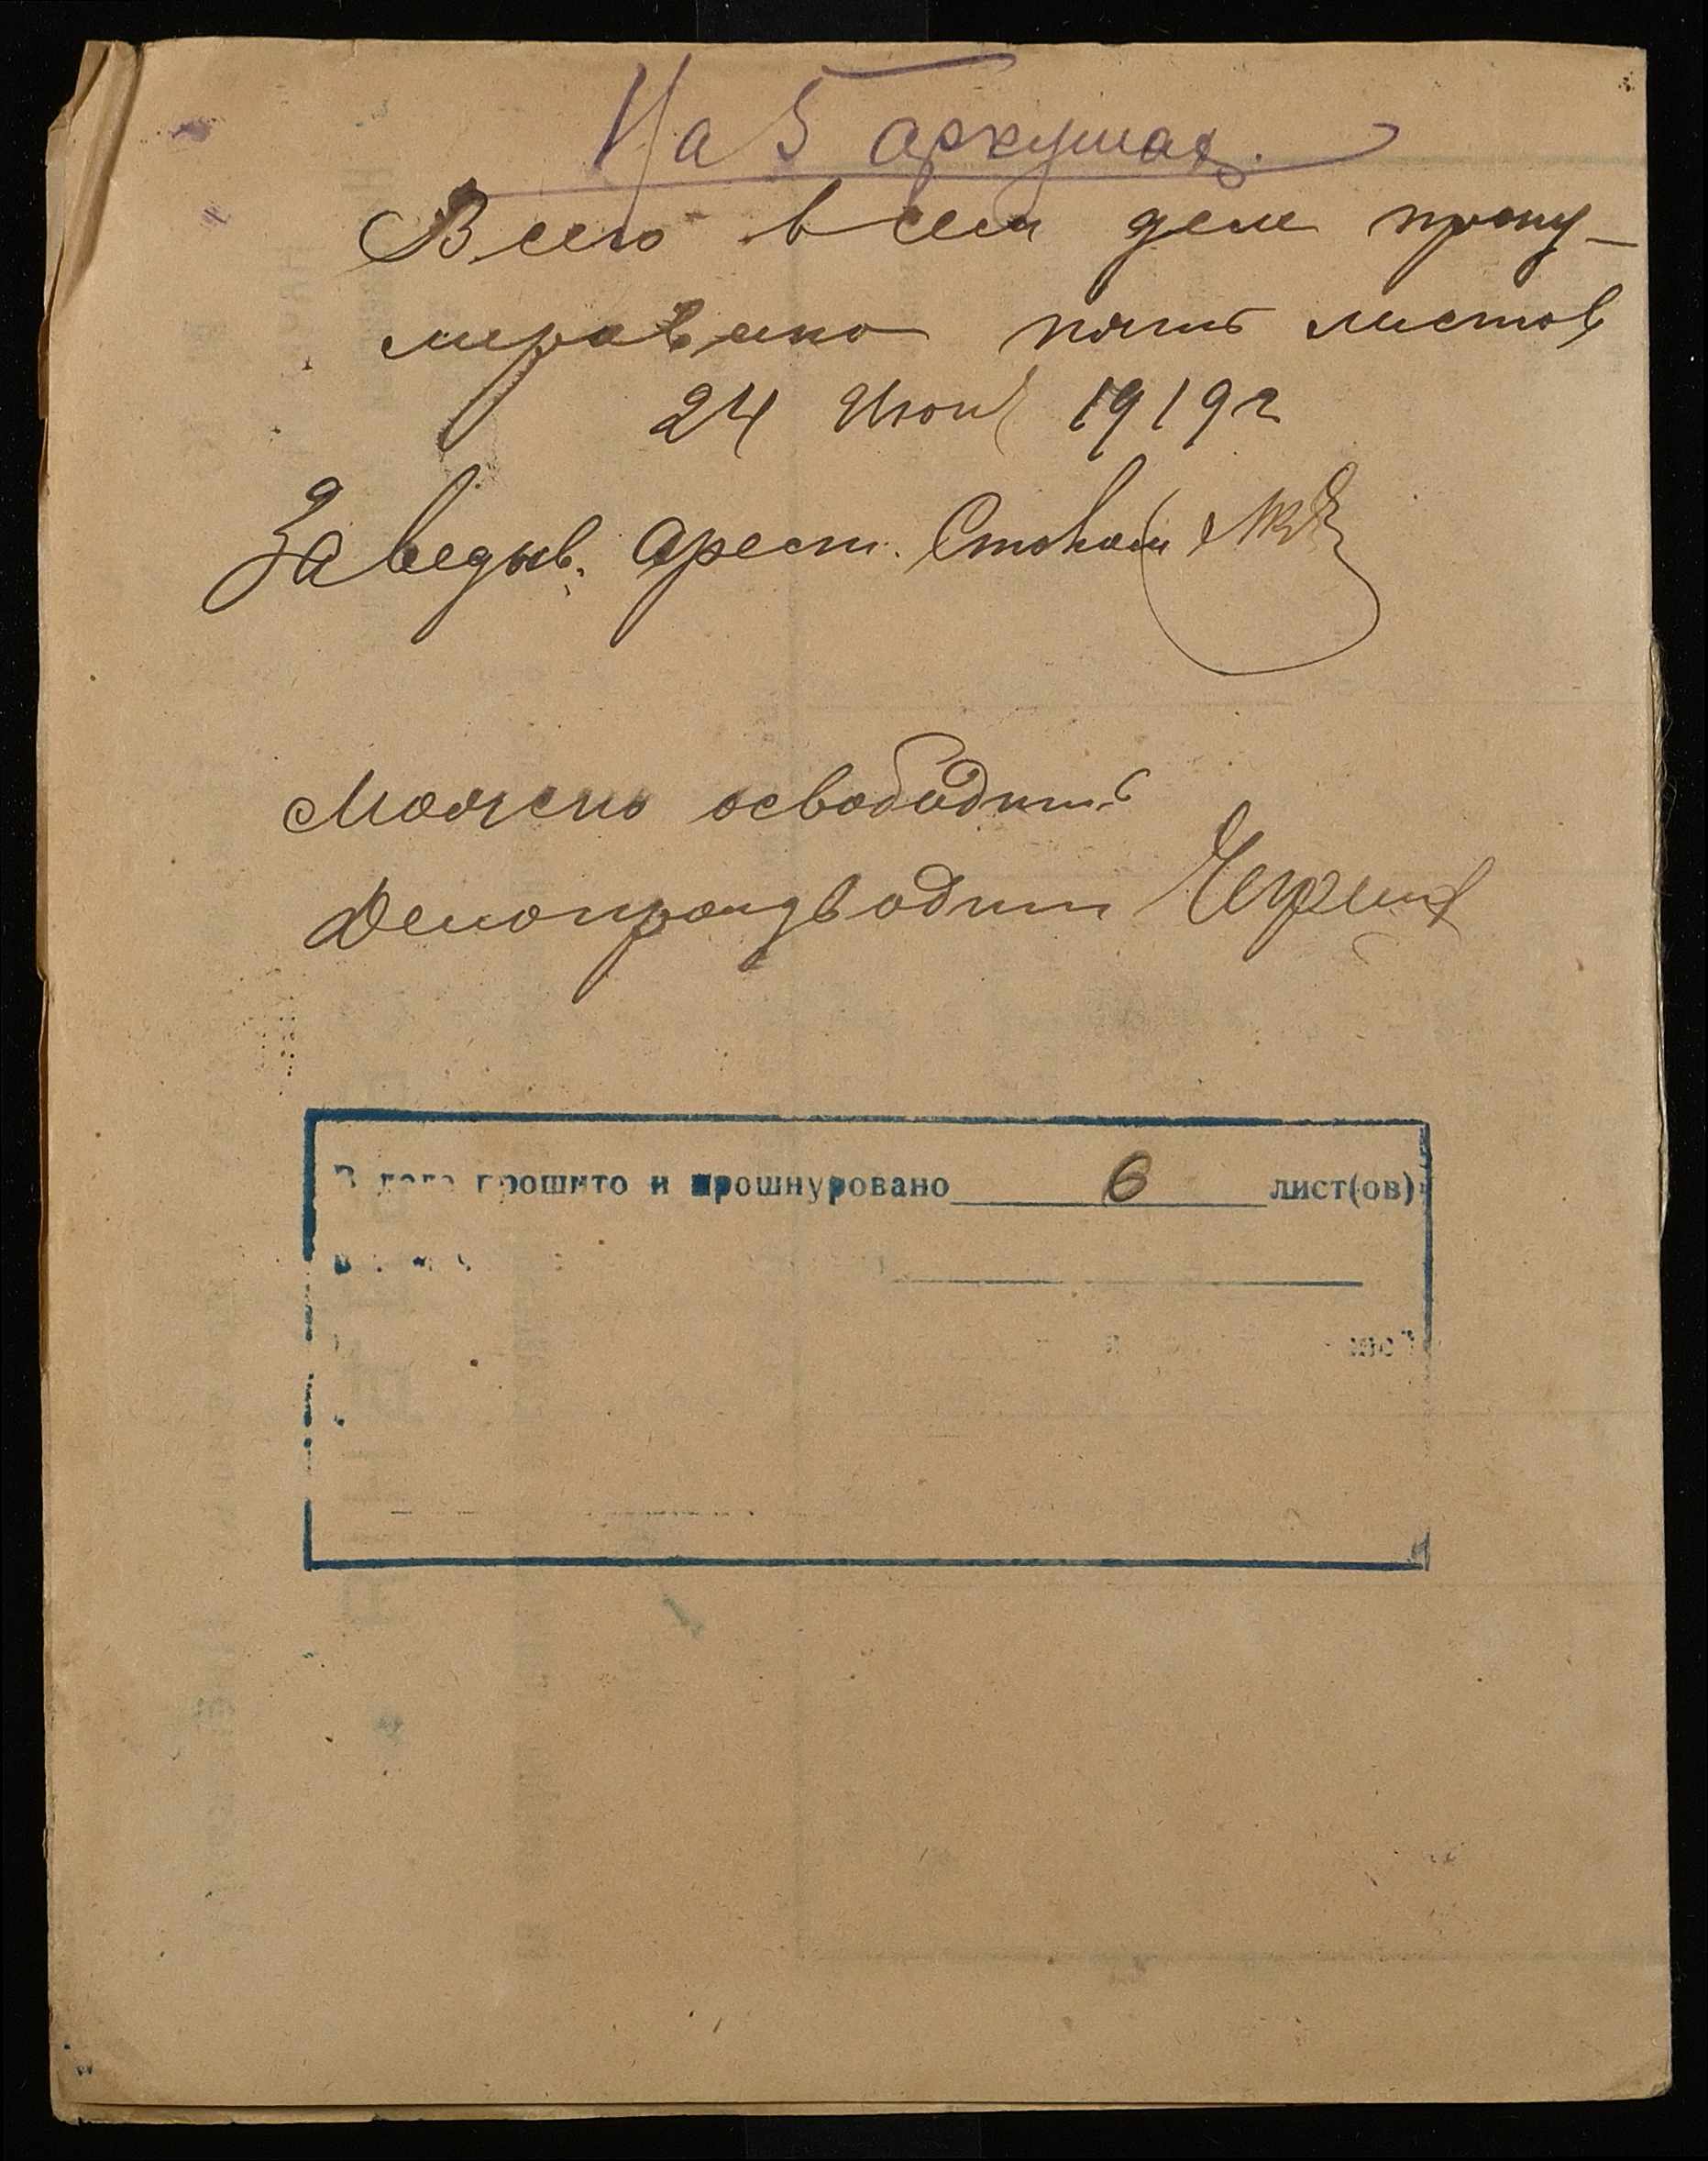 На 5 аркушах.
Всего в сем деле прону-
мировано пять листов
24 Июня 1919 г
Заведыв. Арест. Столом
Можно освободить
Делопроизводит
прошито и прошнуровано 6 лист(ов)